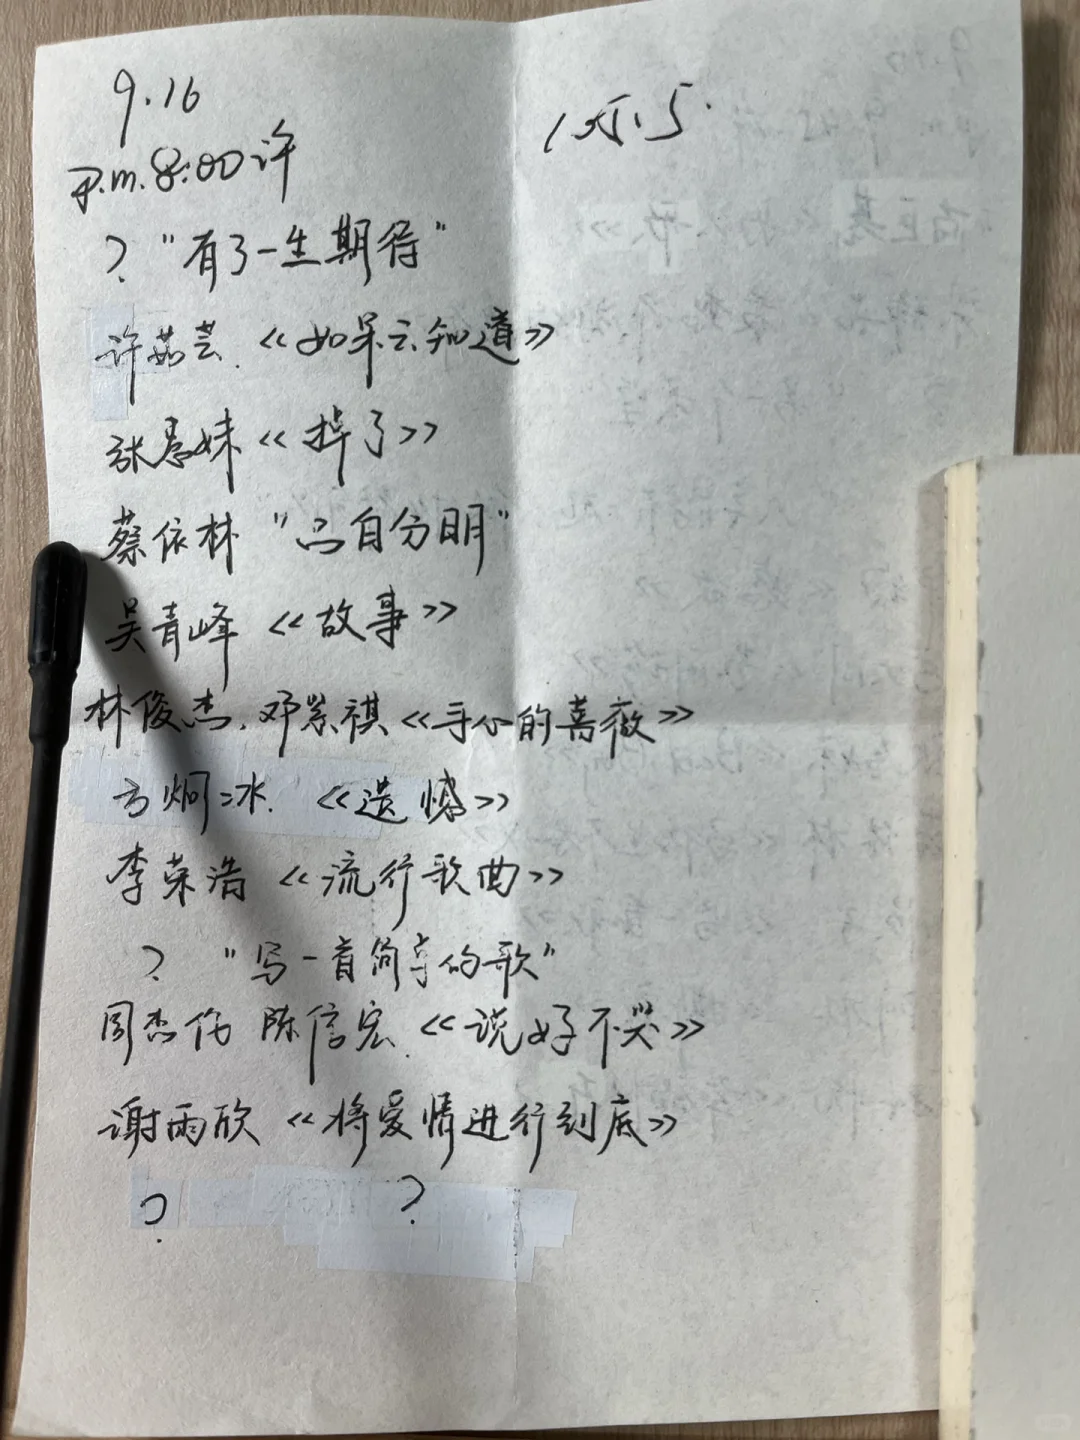 9.16
P.m.8:00许
? "有了一生期待"
许茹芸.《如果云知道》
张惠妹《掉了》
蔡依林 "呂自分明"
吴青峰《故事》
林俊杰.邓紫祺《手心的蔷薇》
方炯冰.《遗憾》
李荣浩《流行歌曲》
? "写一首简单的歌"
周杰伦 陈信宏.《说好不哭》
谢雨欣《将爱情进行到底》
? ?